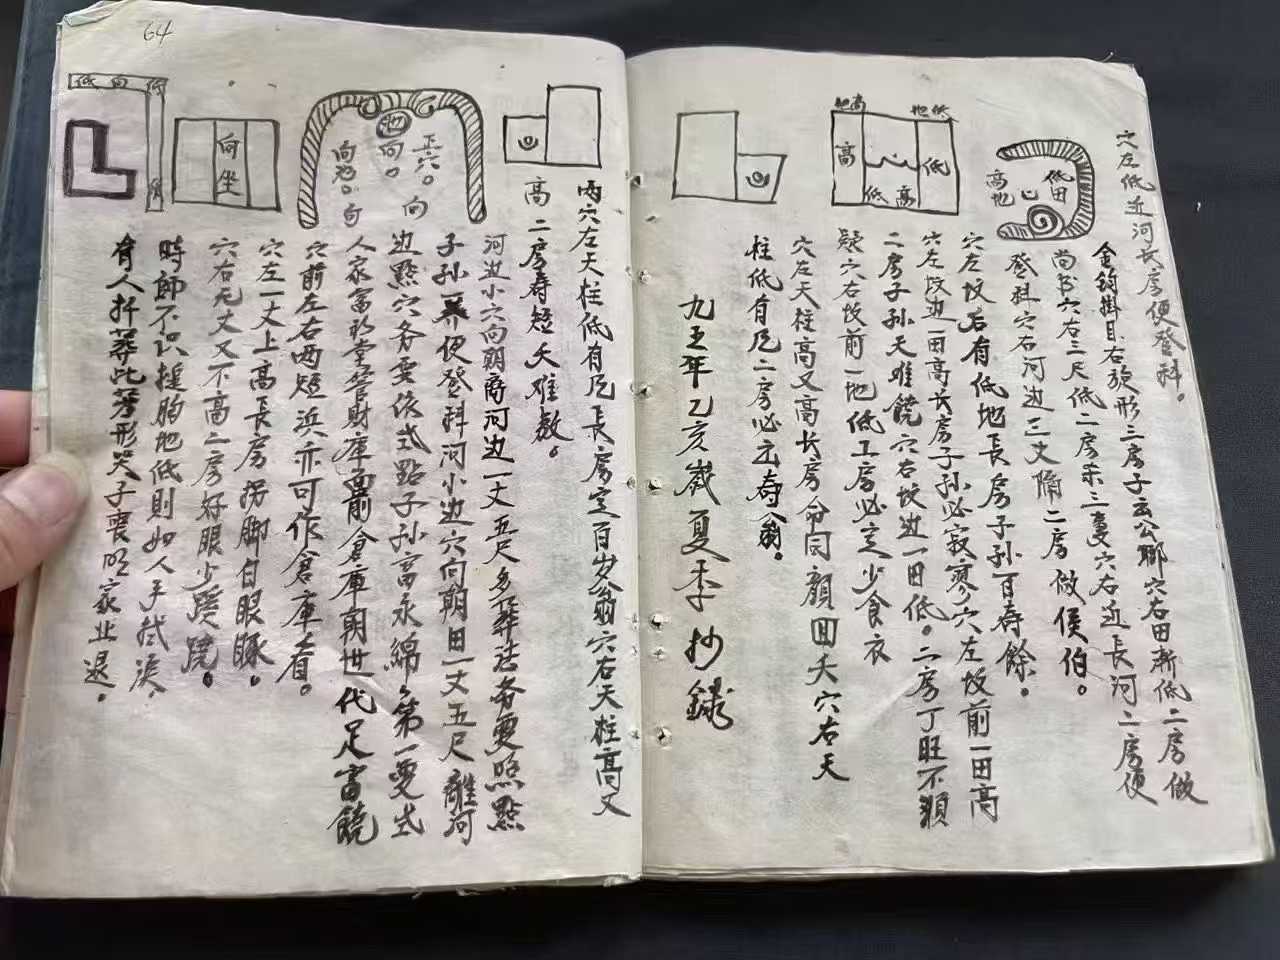 穴左低近河长房便登科。
金鈎掛月右旋形三房子云公卿穴右田漸低二房做
尚书穴右三尺低二房柰三隻穴右近長河二房便
登科穴右河边三丈隔二房做侯伯。
穴左坟右有低地長房子孫百寿餘。
穴左坟边一田高长房子孙必寂寥穴左坟前一田高
二房子孙天难饒穴右坟边一田低。二房丁旺不須
疑穴右坟前一地低二房必定少食衣
穴左天柱高又高长房命同顏回夭穴右天
柱低有凡二房必主寿翁。
九五年乙亥歲夏季抄錄
低田
高地
地高
地低
高
低
低
高
两穴左天柱低有凡長房定百岁翁穴右天柱高又
高二房寿短夭难救。
河边小穴向朝商河边一丈五尺多葬法务要照點
子孙昇便登科河小边穴向朝田一丈五尺離河
边點穴务要依式點子孙富永綿々第一要式
人家富於堂管財庫面前倉庫朝世代足富饒
穴前左右两短浜亦可作倉庫看。
穴左一丈上高長房拐脚白眼睇。
穴右元丈又不高二房好眼少蹊蹺。
時師不识捶胸地低則如人手拭淚。
有人扦葬此等形哭子喪明家业退。
正穴。向
地
向。
向
坐
低
向
64